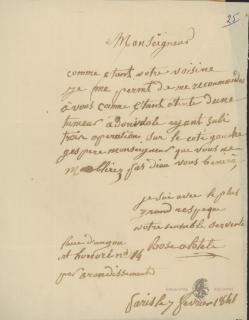 25
Monseigneur
comme etant votre voisine
je me permet de me recommender
a vous comme etant atinte dune
tumeur ayant subi
trois operation sur le coté gauche
jespere monseigneur que vous ne
pas dieu vous
je suis avec le plus
grand respeque
votre umble servente
Rose
Rue
st honoré no 14
per arondissement
paris le 7 fevrier 1841